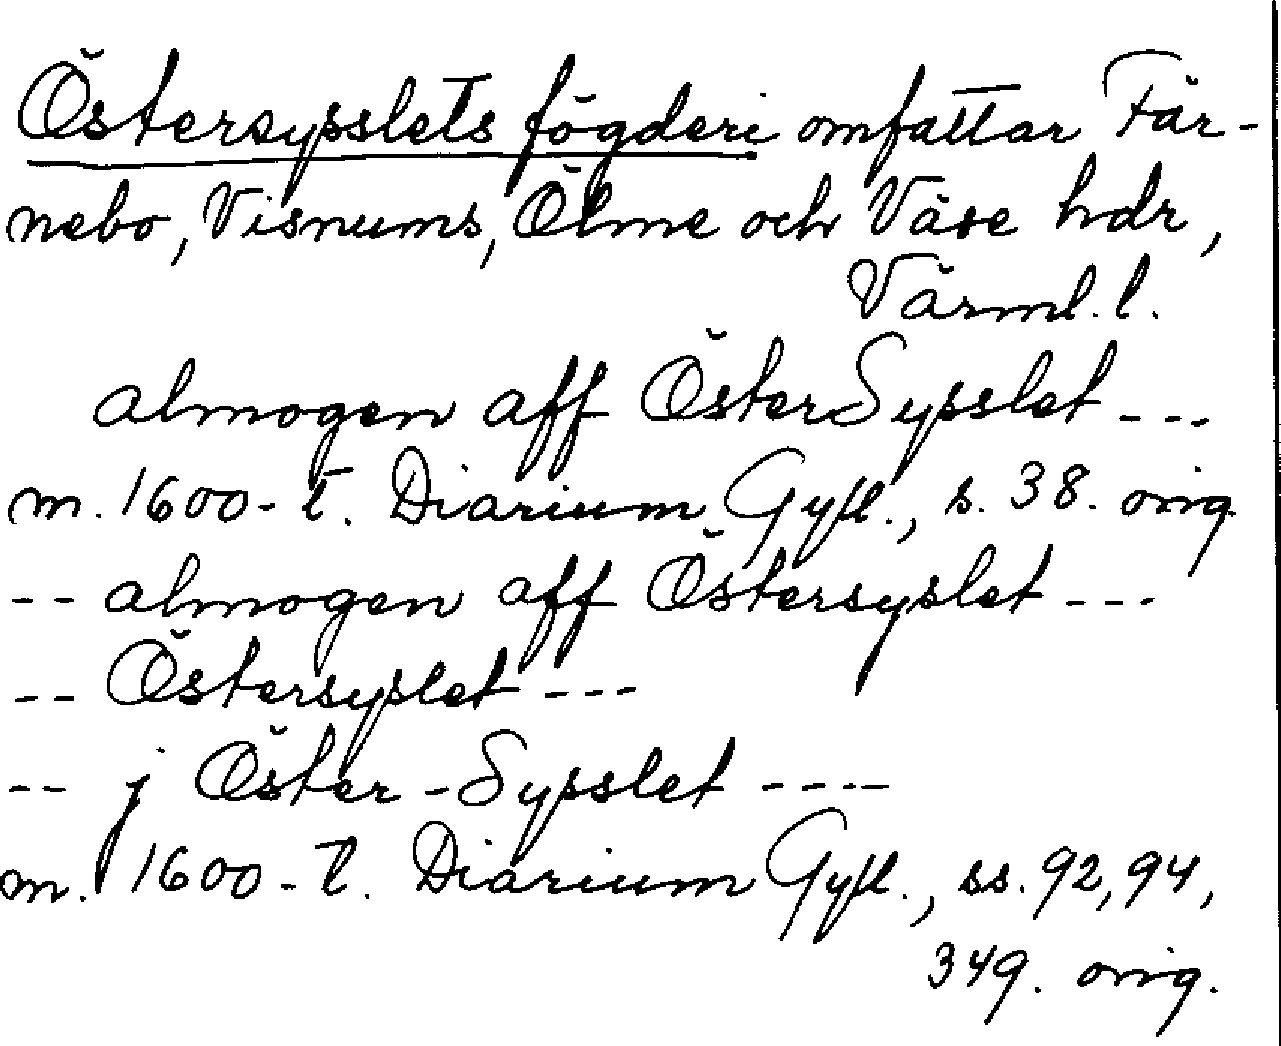 Östersysslets fögderi omfattar Fär-
nebo, Visnums, Ölme och Väse hdr,
Värml. l.
almogen aff ÖsterSysslet ---
m. 1600-t. Diarium Gyll., s. 38. orig.
-- almogen aff Östersyslet ---
-- Östersyslet ---
-- j Öster-Sysslet ----
m. 1600-t. Diarium Gyll., ss. 92, 94,
349. orig.